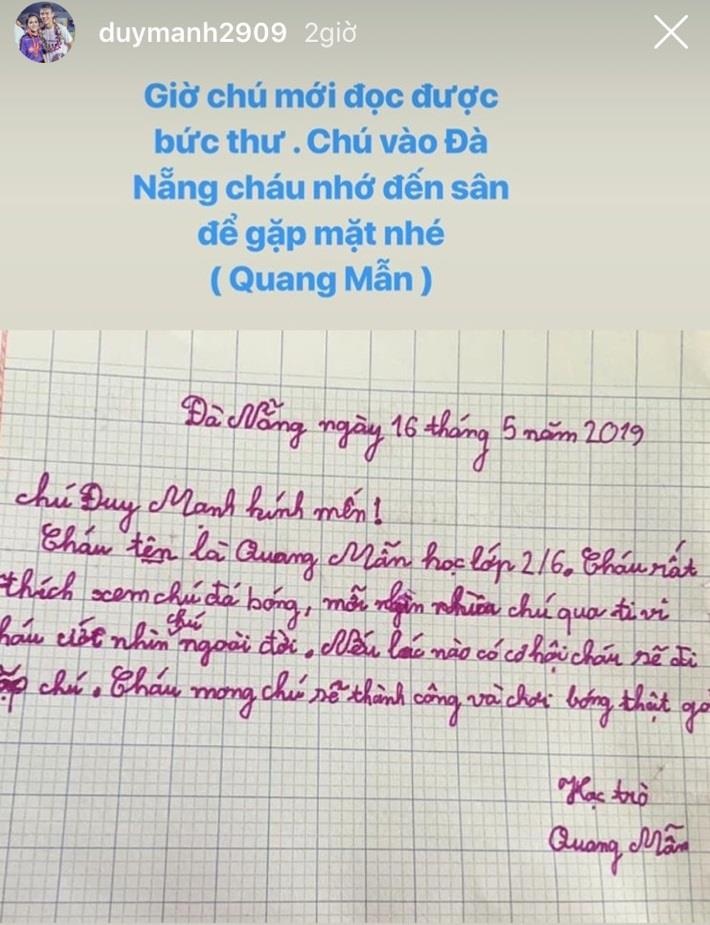 duymanh2909 2giờ
Giờ chú mới đọc được
bức thư . Chú vào Đà
Nẵng cháu nhớ đến sân
để gặp mặt nhé
( Quang Mẫn )
Đà Nẵng ngày 16 tháng 5 năm 2019
chú Duy Mạnh kính mến!
Cháu tên là Quang Mẫn học lớp 2/6. Cháu rất
thích xem chú đá bóng, mỗi nhìn chú qua ti vi
háu ước nhìn chú ngoài đời. Nếu lúc nào có cơ hội cháu sẽ đi
ặp chú. Cháu mong chú sẽ thành công và chơi bóng thật
Học trò
Quang Mẫn